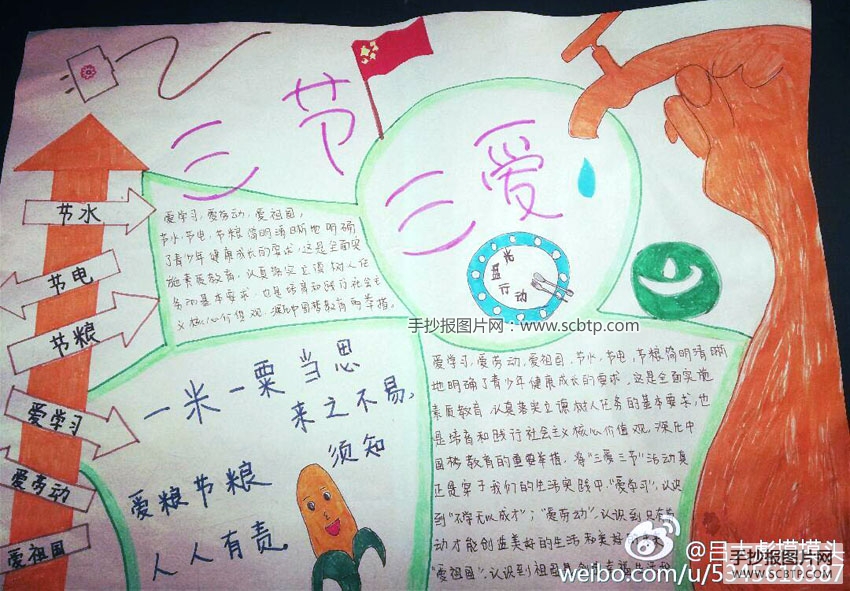 三节
三爱
节水
节电
节粮
爱学习
爱劳动
爱祖国
爱学习,爱劳动,爱祖国,
节水,节电,节粮简明清晰地明确
了青少年健康成长的要求,这是全面实
施素质教育,认真落实立德树人任
务的基本要求,也是培育和践行社会主
义核心价值观,深化中国梦教育的举措,
光盘
行动
手抄报图片网:www.scbtp.com
一米一粟当思
来之不易,
须知
爱粮节粮
人人有责。
爱学习,爱劳动,爱祖国,节水,节电,节粮简明清晰
地明确了青少年健康成长的要求,这是全面实施
素质教育,认真落实立德树人任务的基本要求,也
是培育和践行社会主义核心价值观,深化中
国梦教育的重要举措,将"三爱三节"活动真
正是牵于我们的生活实践中,"爱学习",认识
到"不学无以成才";"爱劳动",认识到只有劳
动才能创造美好的生活和美好的
"爱祖国",认识到祖国是
weibo.com/u/
手抄报图片网
WWW.SCBTP.COM